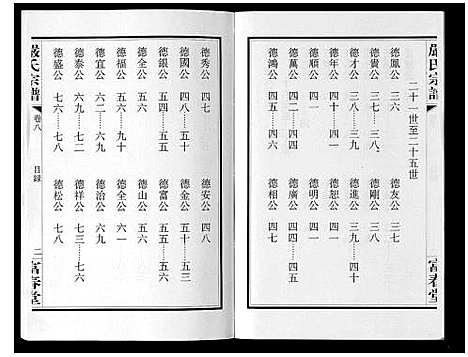 嚴氏宗譜
二十一世至二十五世
德鳳公 三六
德友公 三七
德貴公 三七……三八
德剛公 三八
德才公 三八……三九
德進公 三九……四十
德年公 四一
德恕公 四一
德順公 四一
德明公 四一
德興公 四一……四四
德廣公 四四……四五
德鴻公 四五……四六
德相公 四七
富春堂
德秀公 四七
德安公 四八
德國公 四八……五十
德金公 五一……五三
德銀公 五四……五五
德富公 五五……五六
德全公 五六
德山公 五六
德福公 五六……九十
德全公 六一
德宜公 六二……六九
德治公 六九
德泰公 六九……七二
德祥公 七二……七六
德盛公 七六……七八
德松公 七八
嚴氏宗譜
卷八
目録
二
富春堂